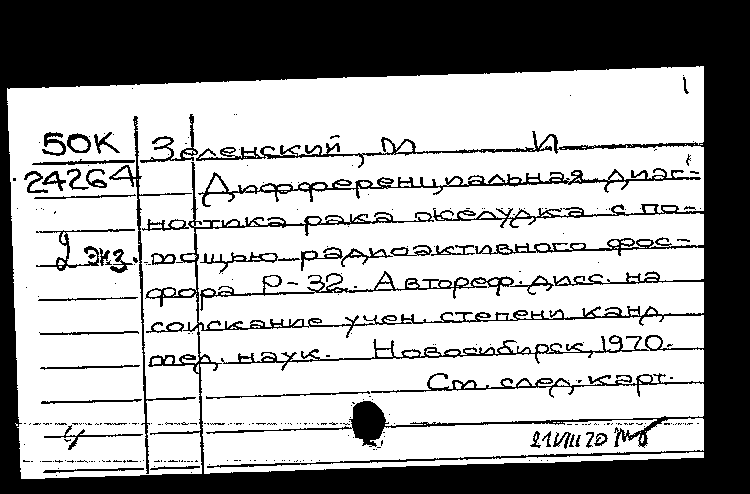 1
50К Зеленский, М И
24264 Дифференциальная диаг-
ностика рака желудка с по-
2 экз. мощью радиоактивного фос-
фора Р-32. Автореф. дисс. на
соискание учен. степени канд.
мед. наук. Новосибирск, 1970.
См. след. карт.
21 VIII 70